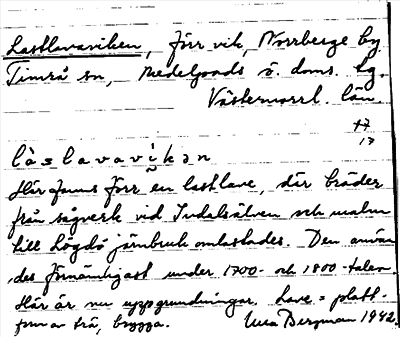 Lastlavaviken, förr vik, Norrberge by
Timrå sn, Medelpads ö. doms. sg.
Västernorrl. län.
17
l à s l a v a v i k ə n
Här fanns förr en lastlave, där bräder
från sågverk vid Indalsälven och malm
till Lögdö järnbruk omlastades. Den använ
des förnämligast under 1700- och 1800-talen.
Här är nu uppgrundningar. Lave = platt-
form av trä, brygga. Bergman 1942.